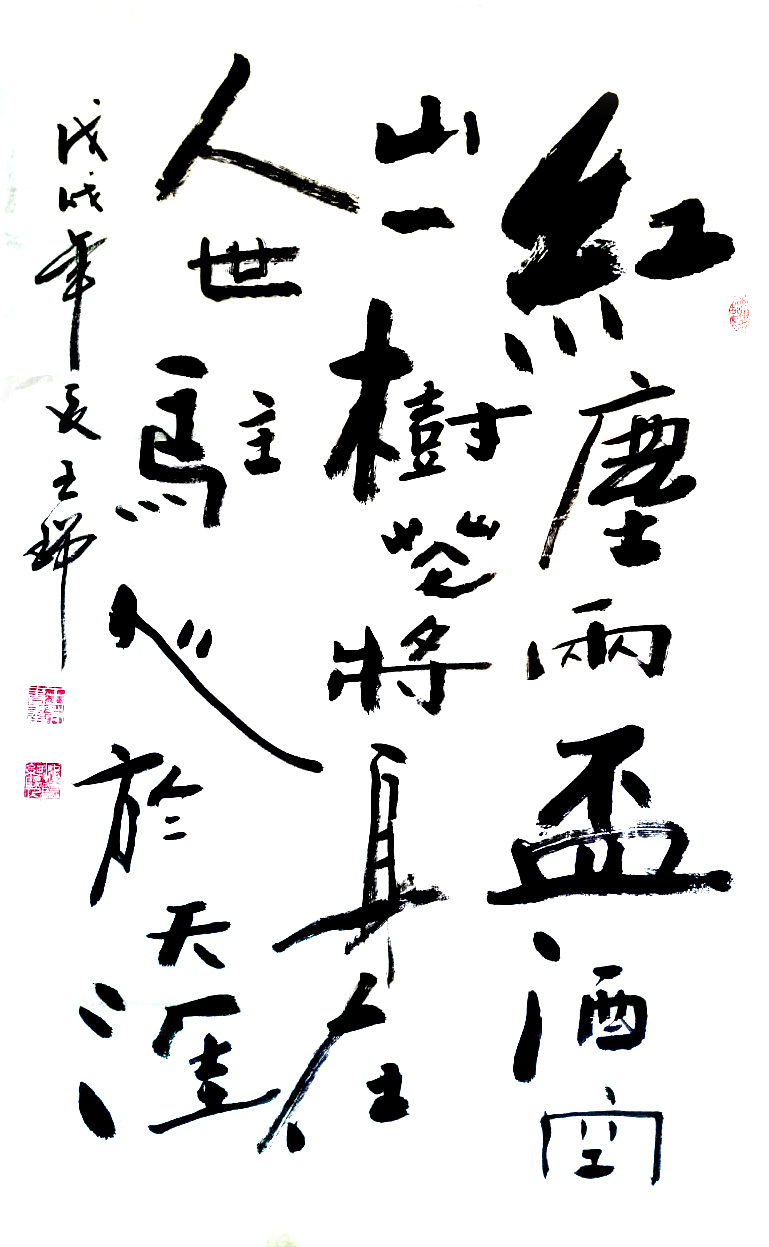 紅塵兩盃酒空
山一樹花將身在
人世駐心於天涯
戊戌年夏王瑞